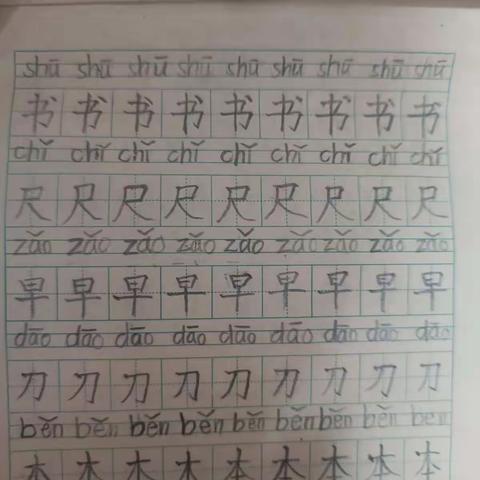 shū shū shū shū shū shū shū shū shū
书 书 书 书 书 书 书 书 书
chǐ chǐ chǐ chǐ chǐ chǐ chǐ chǐ chǐ
尺 尺 尺 尺 尺 尺 尺 尺 尺
zǎo zǎo zǎo zǎo zǎo zǎo zǎo zǎo zǎo
早 早 早 早 早 早 早 早 早
dāo dāo dāo dāo dāo dāo dāo dāo dāo
刀 刀 刀 刀 刀 刀 刀 刀 刀
běn běn běn běn běn běn běn běn ben
本 本 本 本 本 本 本 本 本